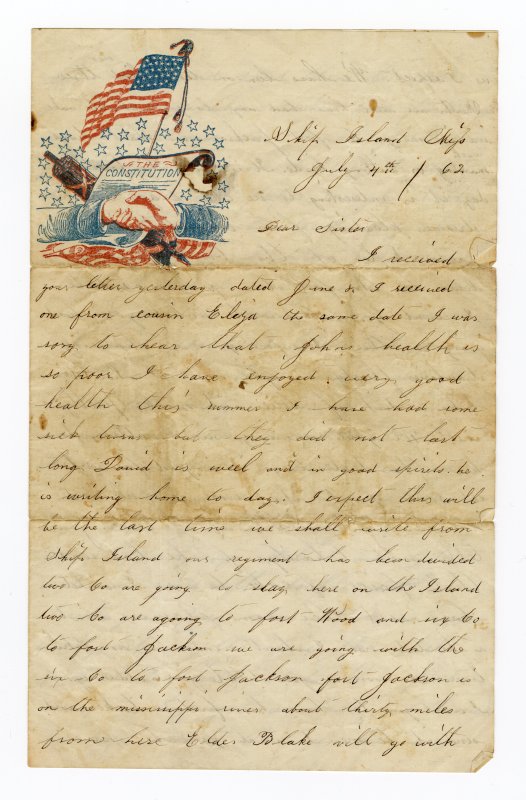 THE
CONSTITUTION
Ship Island Miss
July 4th / 62
Dear Sister
I received
your letter yesterday dated June & I received
one from cousin Eliza the same date I was
sory to hear that Johns health is
so poor I have enjoyed very good
health this summer I have had some
sick turns but they did not last
long David is well and in good spirits. he
is writing home to day. I expect this will
be the last time we shall write from
Ship Island our regiment has been divided
two Co are going to stay here on the Island
two Co are agoing to fort Wood and six Co
to fort Jackson we are going with the
six Co to fort Jackson fort Jackson is
on the mississippi river about thirty miles
from here Elder Blake will go with